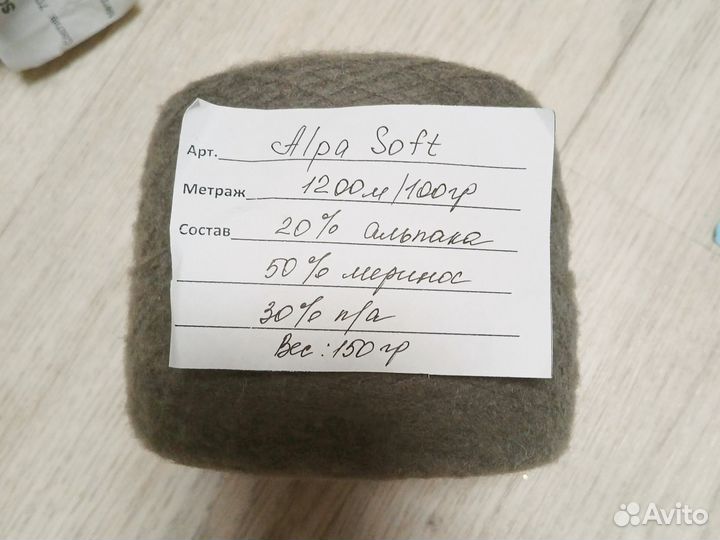 Арт. Alpa Soft
Метраж 1200м/100гр
Состав 20% альпака
50% меринос
30% п/а
Вес: 150гр
Avito